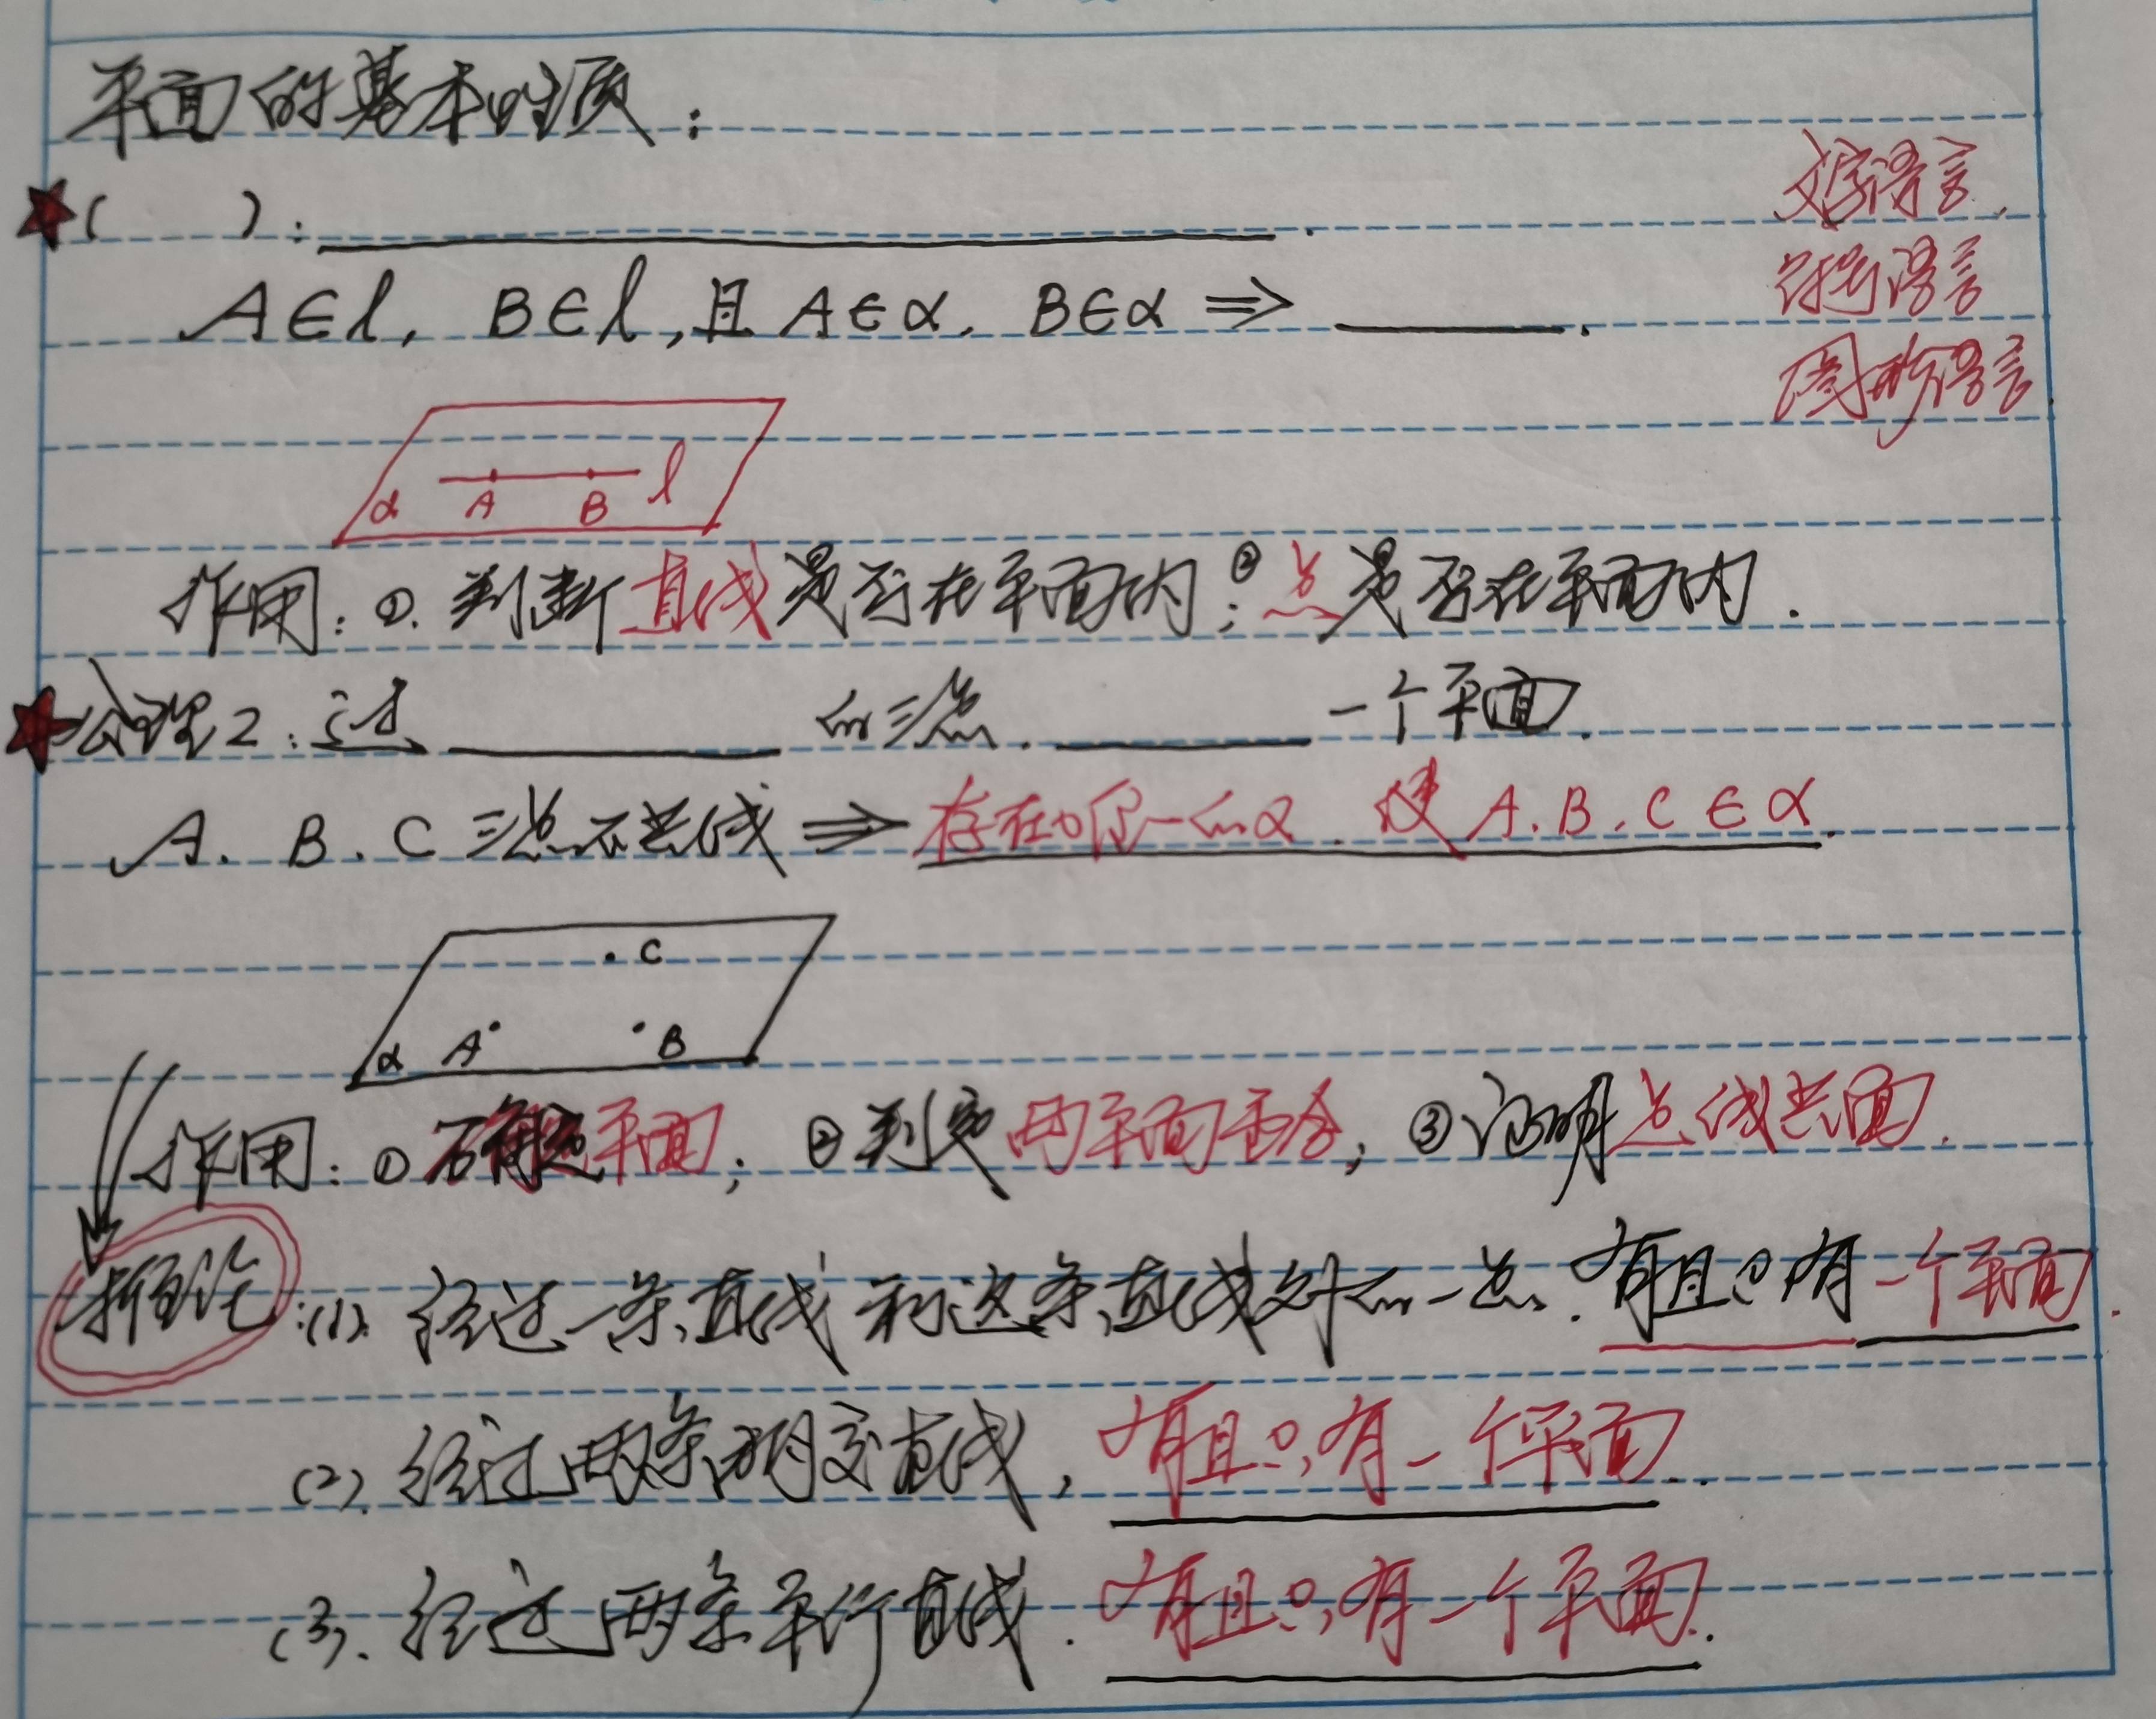 平面的基本性质：
★(    ): ____________.
文字语言.
A∈l, B∈l, 且 A∈α, B∈α ⇒ ______.
符号语言
图形语言
α A B l
作用: ①. 判断直线是否在平面内; ②点是否在平面内.
★公理2: 过 ______ 的三点. ______ 一个平面.
A. B. C 三点不共线 ⇒ 存在唯一的α. 使 A. B. C ∈ α.
C
α A B
作用: ①确定平面; ②判定两平面重合; ③证明点线共面.
推论: (1). 经过一条直线和这条直线外的一点. 有且只有一个平面.
(2). 经过两条相交直线, 有且只有一个平面.
(3). 经过两条平行直线. 有且只有一个平面.